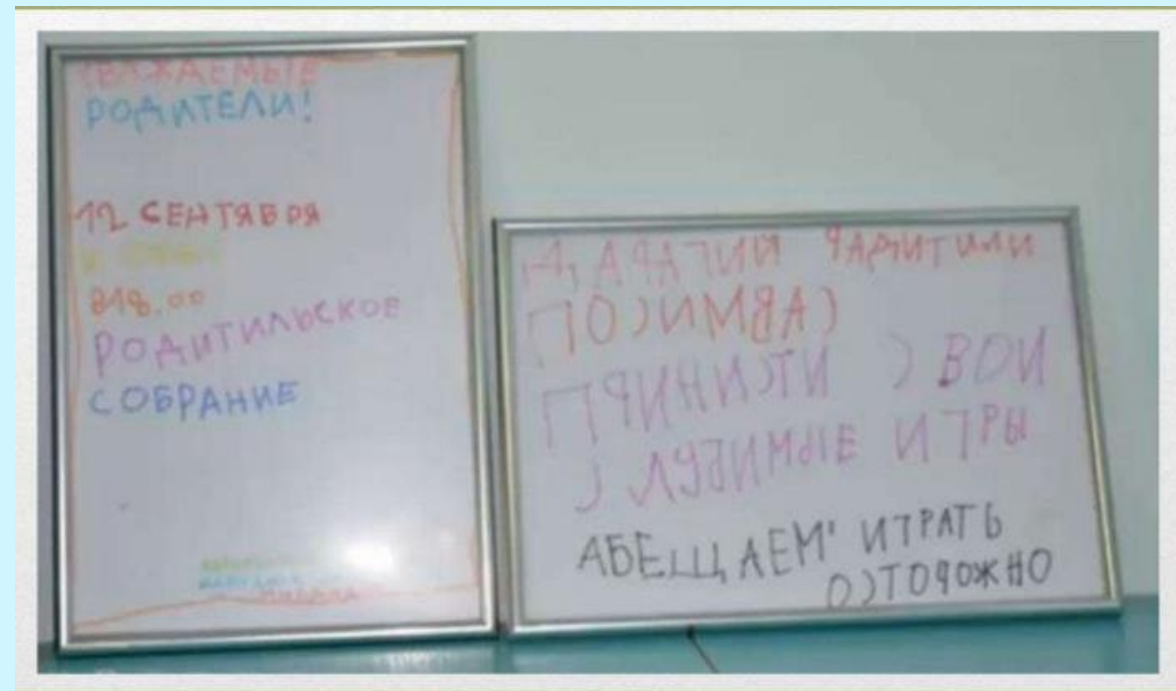 УВАЖАЕМЫЕ
РОДИТЕЛИ!
12 СЕНТЯБРЯ
В18.00
РОДИТИЛЬСКОЕ
СОБРАНИЕ
ДАРАГИИ РАДИТИЛИ
ПОСИМ ВАС
ПРИНИСТИ СВОИ
ЛУБИМЫЕ ИГРЫ
АБЕЩАЕМ ИГРАТЬ
ОСТОРОЖНО